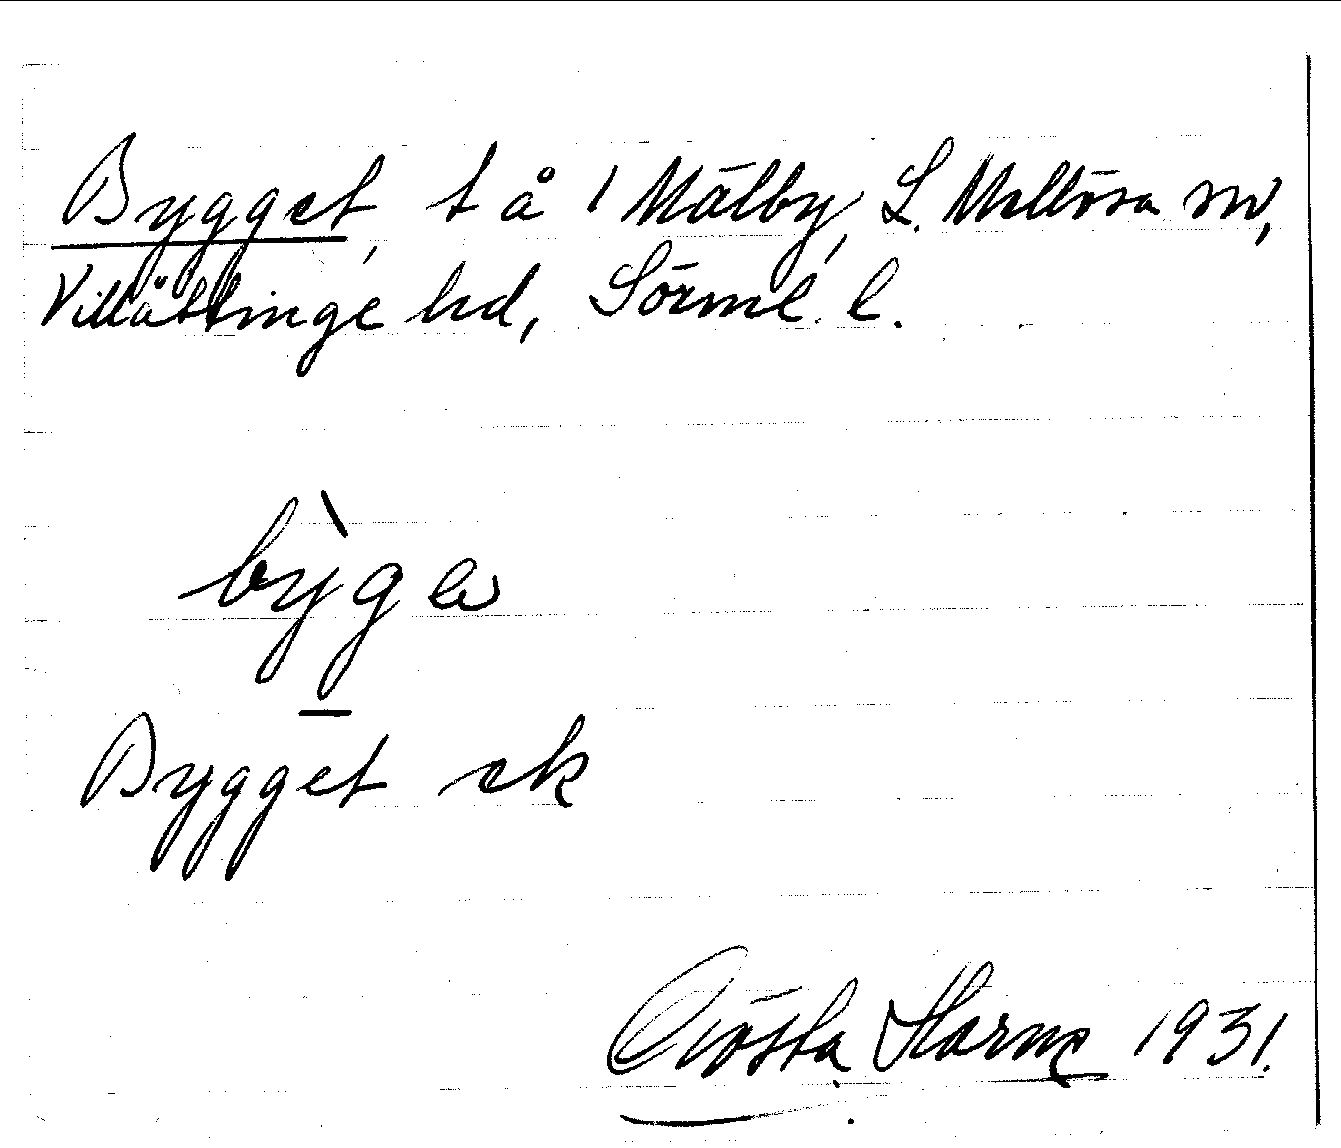 Bygget, t å 1 Mälby, L. Mellösa sn,
Villåttinge hd, Sörml. l.
bỳge
Bygget ek
Gösta Harms 1931.